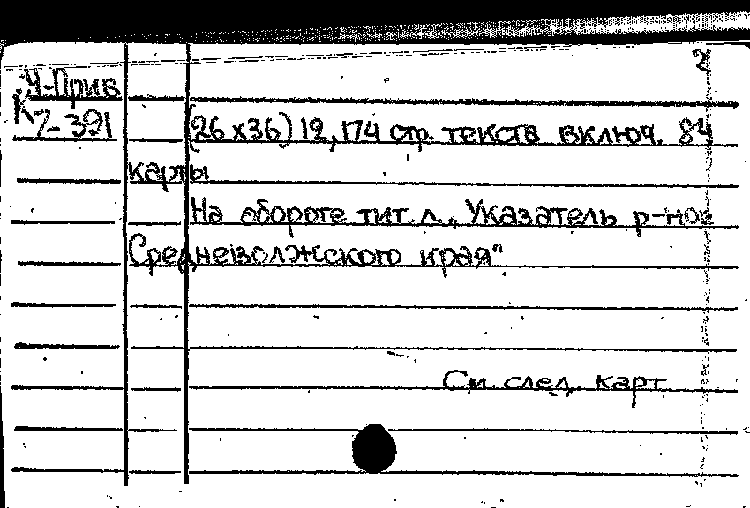 2
Ч-Прив
К 7-391
(26 х 36) 12, 174 стр. текста включ. 84
карты
На обороте тит. л. „Указатель р-нов
Средневолжского края"
См. след. карт.